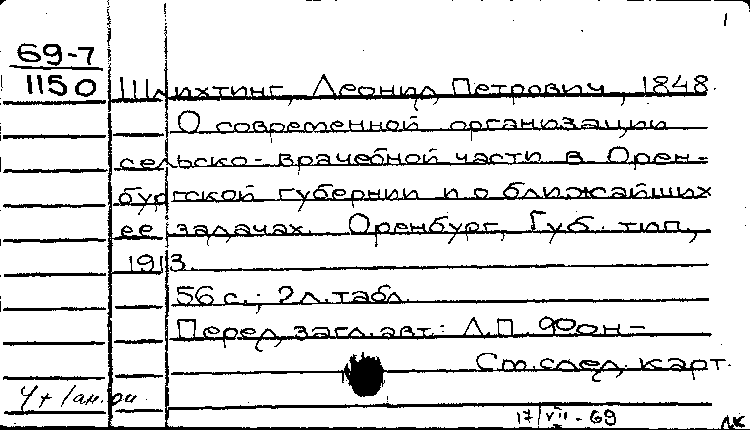 1
69-7
1150
Шлихтинг, Леонид Петрович, 1848
О современной организации
сельско-врачебной части в Орен-
бургской губернии и о ближайших
ее задачах. Оренбург, Губ. тип.,
1913.
56 с.; 2 л. табл.
Перед загл. авт.: Л.П. Фон-
См. след. карт.
17/VII-69